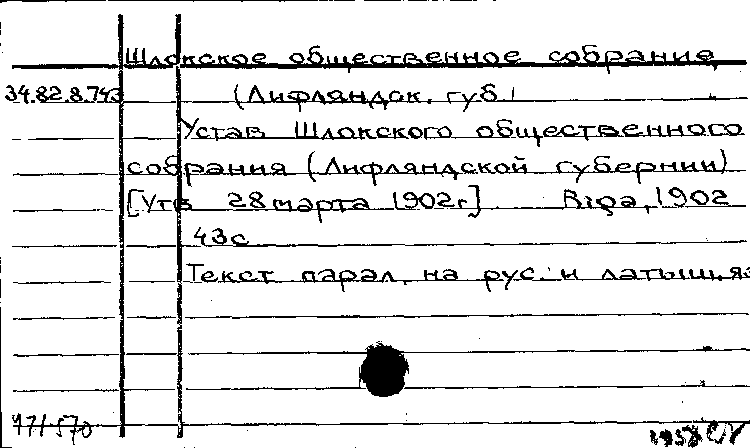 Шлокское общественное собрание
34.82.8.743
(Лифляндск. губ.)
Устав Шлокского общественного
собрания (Лифляндской губернии)
[Утв 28 марта 1902г.] Rīga, 1902
43с
Текст парал. на рус. и латыш. яз
171570
1958